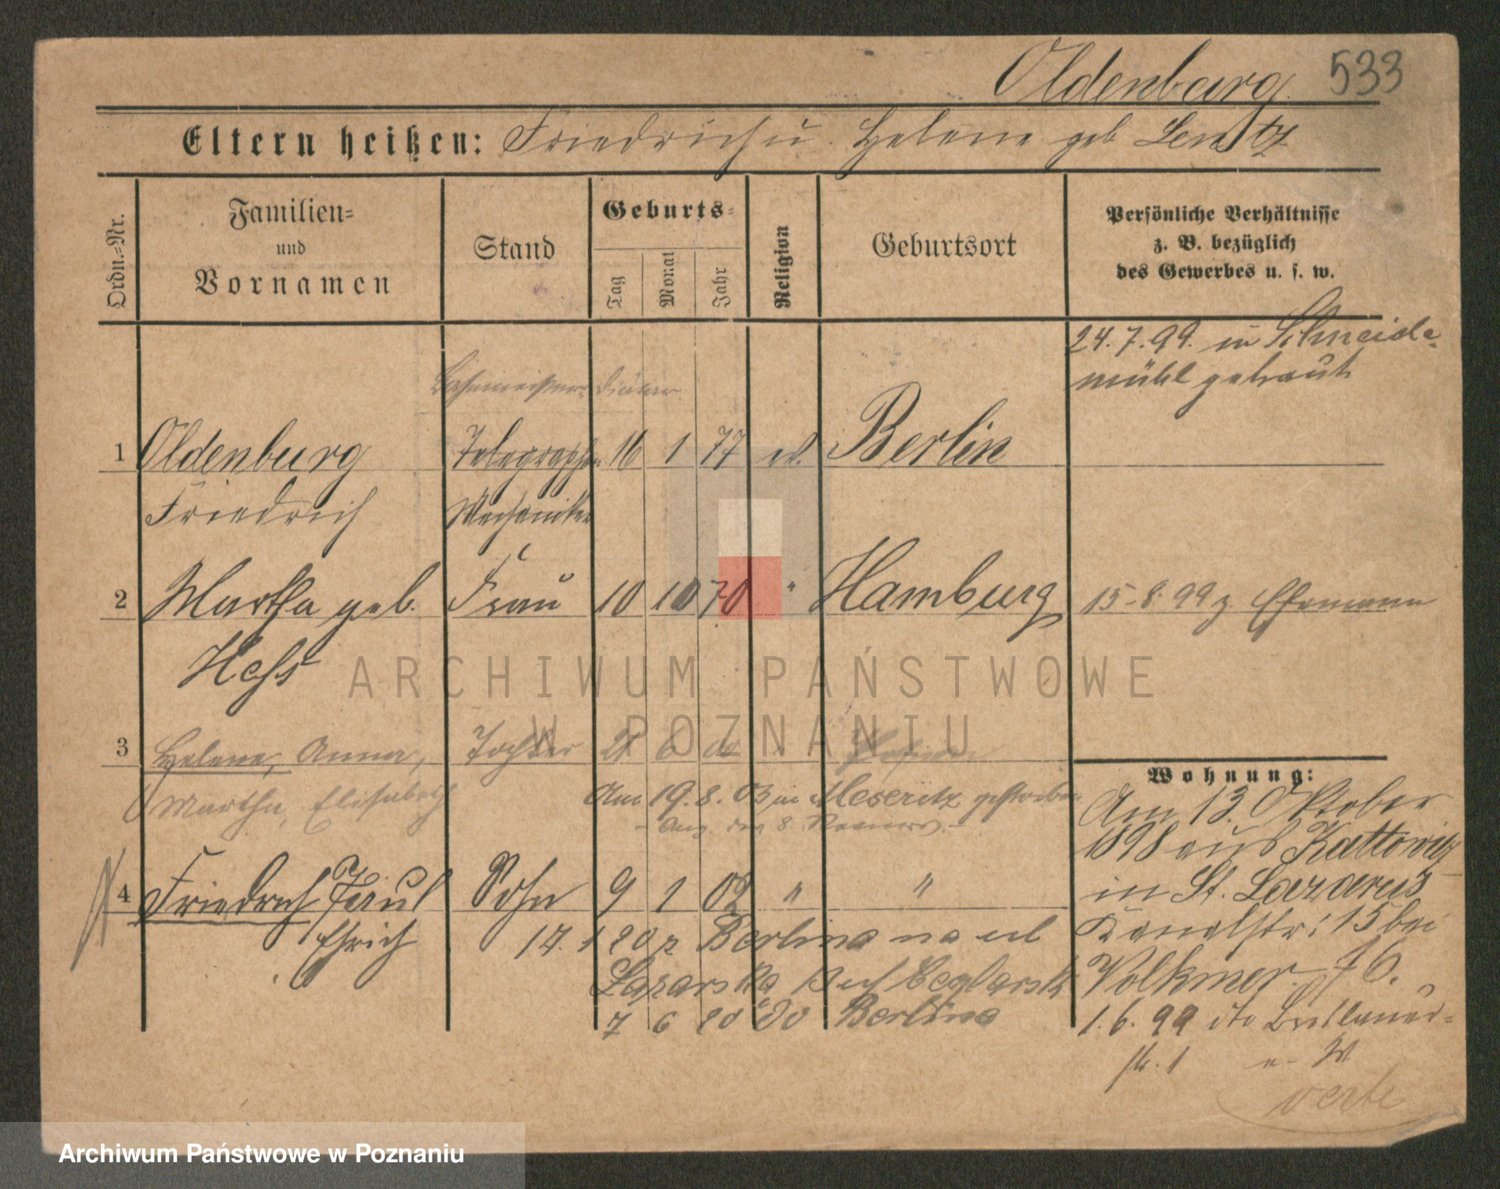 Oldenburg. 533
Eltern heißen: Friedrich u. Helene geb Lentz
Ordn.-Nr.
Familien-
und
Vornamen
Stand
Geburts-
Tag
Monat
Jahr
Religion
Geburtsort
Persönliche Verhältnisse
z. B. bezüglich
des Gewerbes u. s. w.
24.7.99. in Schneide-
mühl getraut
1 Oldenburg Telegraphen 16 1 77 ev. Berlin
Friedrich Mechaniker
2 Martha geb. Frau 10 10 70 " Hamburg 15.8.99 z. Ehemann
Hess
ARCHIWUM PAŃSTWOWE
W POZNANIU
3 Helene, Anna, Tochter 21 6 00 " Posen
Martha, Elisabeth Am 19.8.03 in Meseritz gestorben
4 Friedrich Paul Sohn 9 1 02 " "
Ehrich 17. 1 20 z Berlina na ul
7 6 20 do Berlina
Wohnung:
Am 13. Oktober
1898 aus Kattowitz
in St. Lazarus
Kanalstr: 15 bei
Volkmer. 76.
1.6.99
str. 1
verte
Archiwum Państwowe w Poznaniu